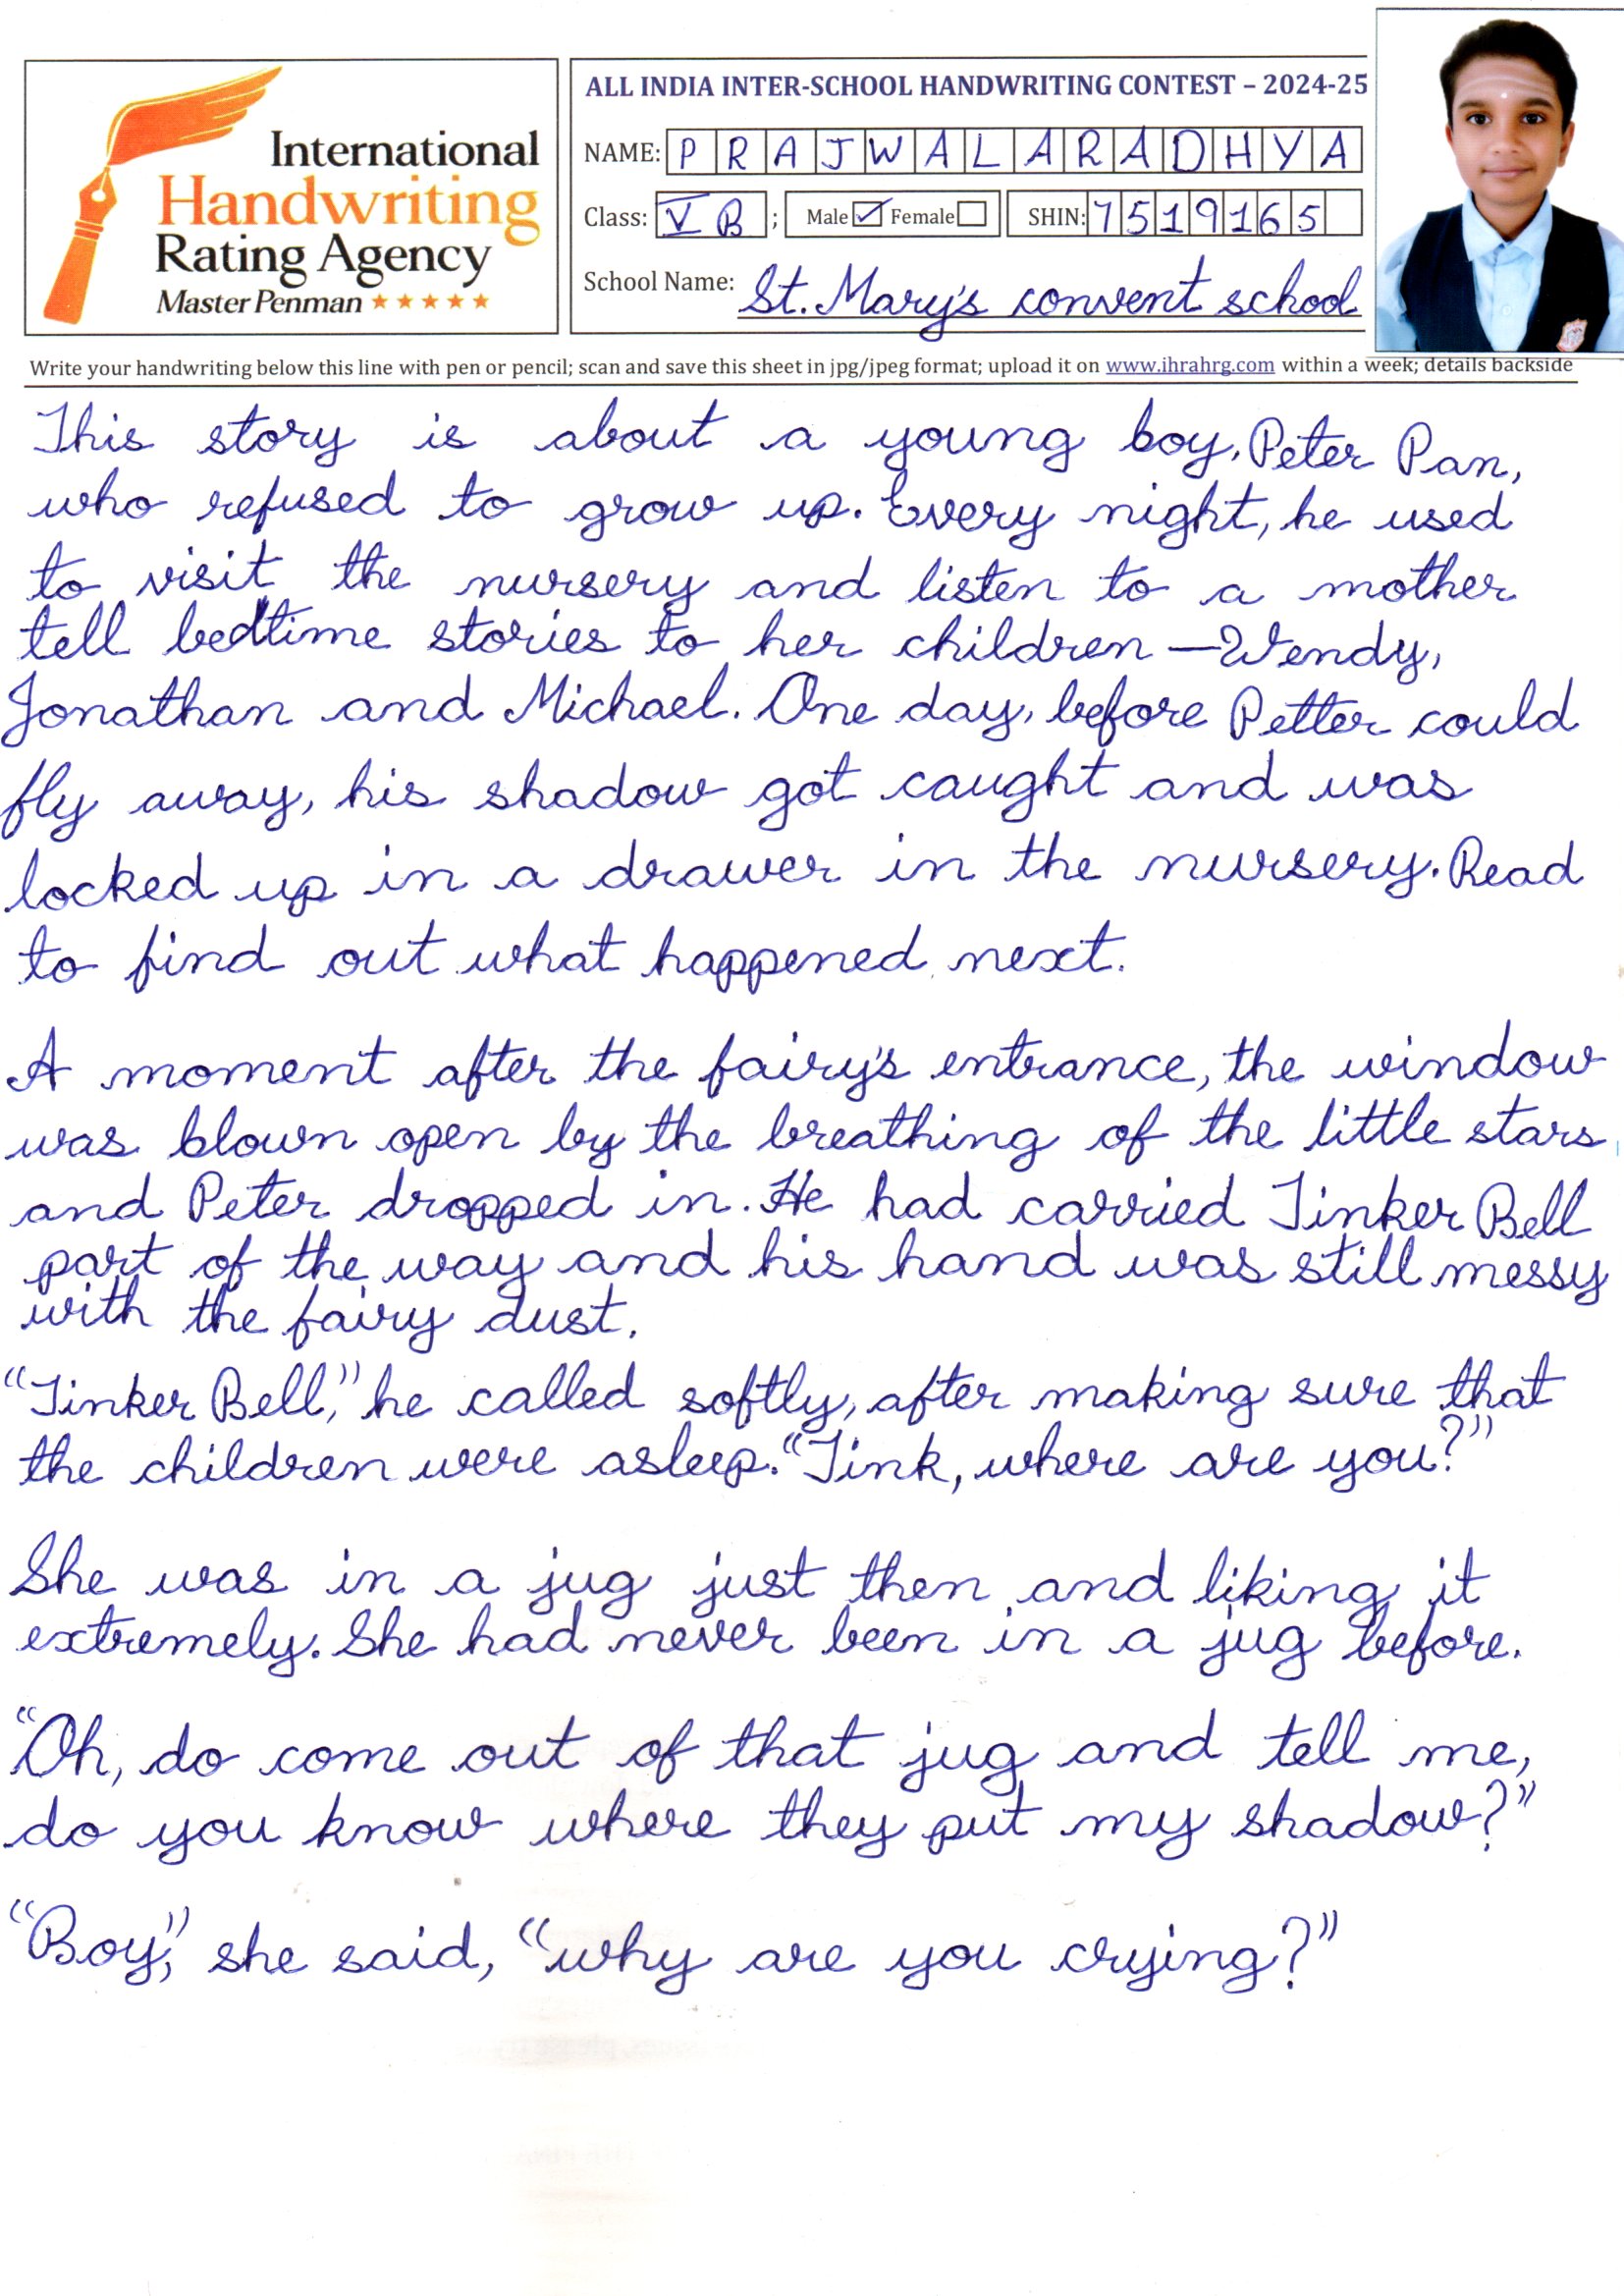 International
Handwriting
Rating Agency
Master Penman ★★★★★
ALL INDIA INTER-SCHOOL HANDWRITING CONTEST – 2024-25
NAME: PRAJWALARADHYA
Class: V B ; Male ☑ Female ☐ SHIN: 7519165
School Name: St. Mary's convent school
Write your handwriting below this line with pen or pencil; scan and save this sheet in jpg/jpeg format; upload it on www.ihrahrg.com within a week; details backside
This story is about a young boy, Peter Pan,
who refused to grow up. Every night, he used
to visit the nursery and listen to a mother
tell bedtime stories to her children — Wendy,
Jonathan and Michael. One day, before Petter could
fly away, his shadow got caught and was
locked up in a drawer in the nursery. Read
to find out what happened next.
A moment after the fairy's entrance, the window
was blown open by the breathing of the little stars
and Peter dropped in. He had carried Tinker Bell
part of the way and his hand was still messy
with the fairy dust.
“Tinker Bell,” he called softly, after making sure that
the children were asleep. “Tink, where are you?”
She was in a jug just then and liking it
extremely. She had never been in a jug before.
“Oh, do come out of that jug and tell me,
do you know where they put my shadow?”
“Boy,” she said, “why are you crying?”